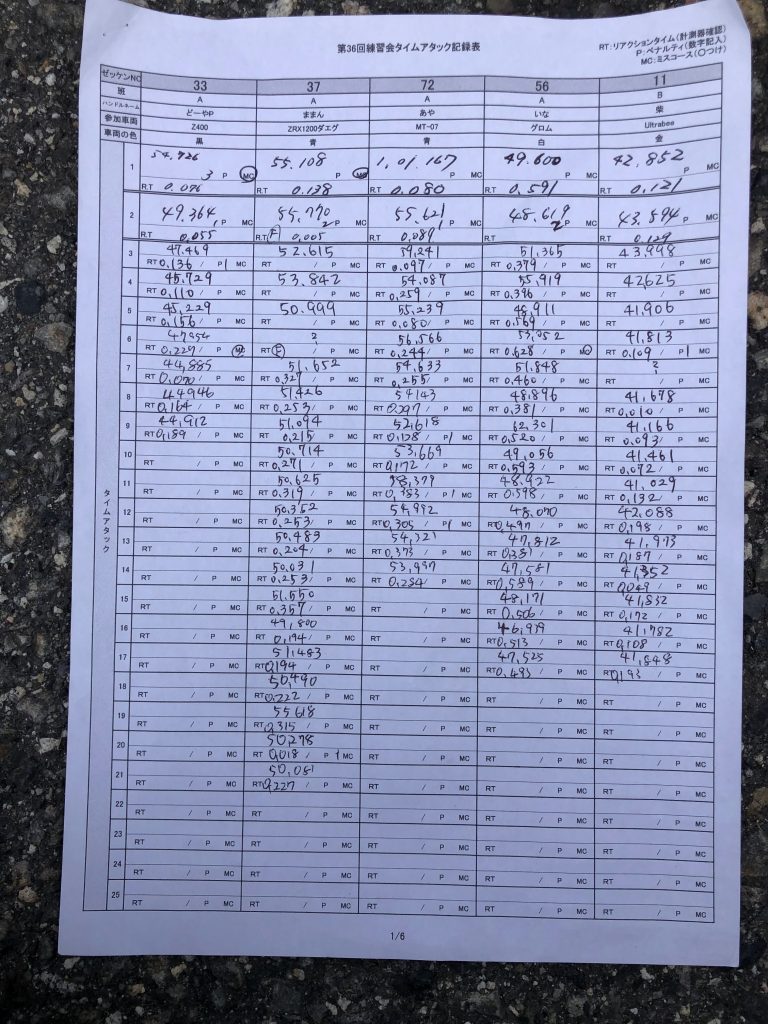 第36回練習会タイムアタック記録表
RT:リアクションタイム(計測器確認)
P:ペナルティ(数字記入)
MC:ミスコース(〇つけ)
ゼッケンNO 33 37 72 56 11
班 A A A A B
ハンドルネーム どーやP ままん あや いな 柴
参加車両 Z400 ZRX1200ダエグ MT-07 グロム Ultrabee
車両の色 黒 青 青 白 金
1 54.726 55.108 1,01.167 49.600 42.852
3 P MC P MC P MC P MC P MC
R.T 0.076 R.T 0.138 R.T 0.080 R.T 0.591 R.T 0.121
2 49.364 55.770 55.621 48.619 43.594
1 P MC 2 P MC 1 P MC 2 P MC P MC
R.T 0.055 R.T F 0.005 R.T 0.089 R.T R.T 0.129
タイムアタック
3 47.469 52.615 59.241 51.365 43.998
RT 0.136 / P 1 MC RT / P MC RT 0.097 / P MC RT 0.379 / P MC RT / P MC
4 45.729 53.842 54.087 55.919 42625
RT 0.110 / P MC RT / P MC RT 0.259 / P MC RT 0.396 / P MC RT / P MC
5 45.229 50.999 55.239 48.911 41,906
RT 0.156 / P MC RT / P MC RT 0.080 / P MC RT 0.569 / P MC RT / P MC
6 ? 56.566 53.052 41,813
RT 0.227 / P MC RT F / P MC RT 0.244 / P MC RT 0.628 / P MC RT 0.109 / P 1 MC
7 44,885 51,652 54,633 51.848 ?
RT 0.070 / P MC RT 0.327 / P MC RT 0.255 / P MC RT 0.460 / P MC RT / P MC
8 44946 51,426 54143 48,896 41,678
RT 0.164 / P MC RT 0.253 / P MC RT / P MC RT 0.381 / P MC RT 0,010 / P MC
9 44,912 51,094 52,618 62,301 41,166
RT 0,189 / P MC RT 0.215 / P MC RT 0.128 / P 1 MC RT 0.520 / P MC RT 0.093 / P MC
10 50,714 53,669 49,056 41,461
RT / P MC RT 0.271 / P MC RT 0,172 / P MC RT 0.593 / P MC RT 0.072 / P MC
11 50,625 48,922 41,029
RT / P MC RT 0.319 / P MC RT 0,383 / P 1 MC RT 0.598 / P MC RT 0,132 / P MC
12 50,352 54,992 48,070 42,088
RT / P MC RT 0.253 / P MC RT 0,305 / P 1 MC RT 0,497 / P MC RT 0,198 / P MC
13 50,483 54,221 47,812 41,973
RT / P MC RT 0.204 / P MC RT 0,373 / P MC RT 0,381 / P MC RT 0,187 / P MC
14 50,031 53,997 47,581 41,352
RT / P MC RT 0.253 / P MC RT 0,284 / P MC RT 0,589 / P MC RT 0,049 / P MC
15 51,550 48,171 41,832
RT / P MC RT 0,357 / P MC RT / P MC RT 0,506 / P MC RT 0,172 / P MC
16 49,800 46,979 41,782
RT / P MC RT 0,194 / P MC RT / P MC RT 0,513 / P MC RT 0,108 / P MC
17 51,483 47,525 41,848
RT / P MC RT 0,194 / P MC RT / P MC RT 0,493 / P MC RT 0,193 / P MC
18 50,490
RT / P MC RT 0,222 / P MC RT / P MC RT / P MC RT / P MC
19 55618
RT / P MC RT 0,315 / P MC RT / P MC RT / P MC RT / P MC
20 50,278
RT / P MC RT 0,018 / P 1 MC RT / P MC RT / P MC RT / P MC
21 50,081
RT / P MC RT 0,227 / P MC RT / P MC RT / P MC RT / P MC
22
RT / P MC RT / P MC RT / P MC RT / P MC RT / P MC
23
RT / P MC RT / P MC RT / P MC RT / P MC RT / P MC
24
RT / P MC RT / P MC RT / P MC RT / P MC RT / P MC
25
RT / P MC RT / P MC RT / P MC RT / P MC RT / P MC
1/6